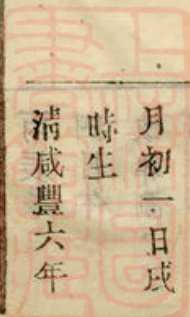 月初一日戌
時生
清咸豐六年